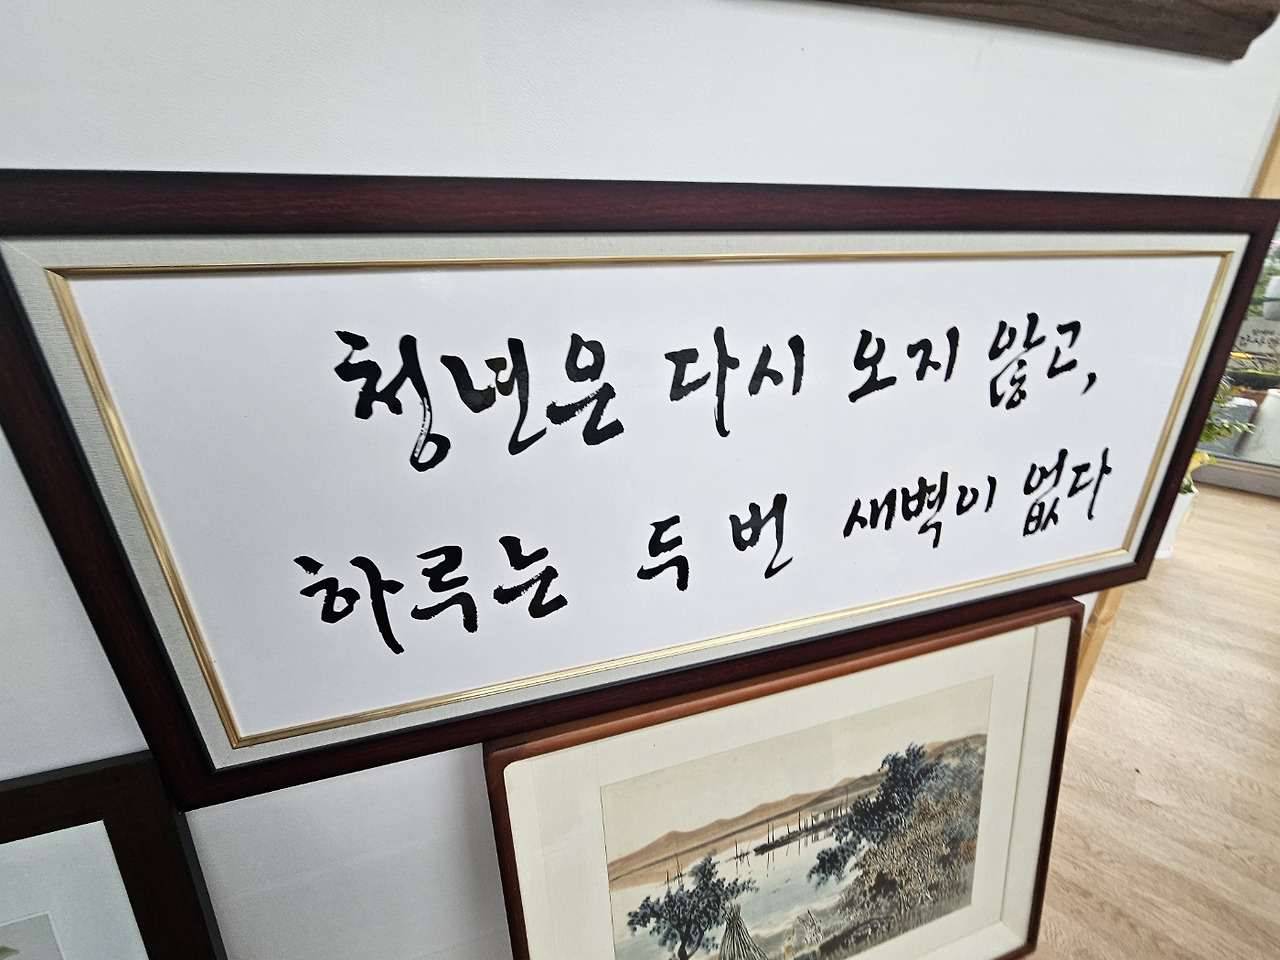 청년은 다시 오지 않고,
하루는 두 번 새벽이 없다